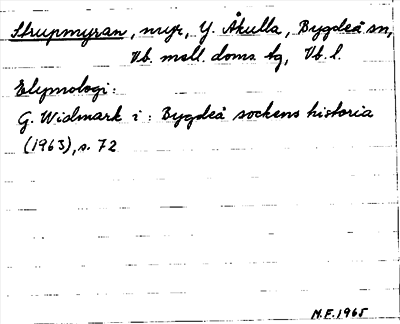 Strupmyran, myr, Y. Åkulla, Bygdeå sn,
Vb. mell. doms. tg, Vb. l.
Etymologi:
G. Widmark i: Bygdeå sockens historia
(1963), s. 72
M.E. 1965